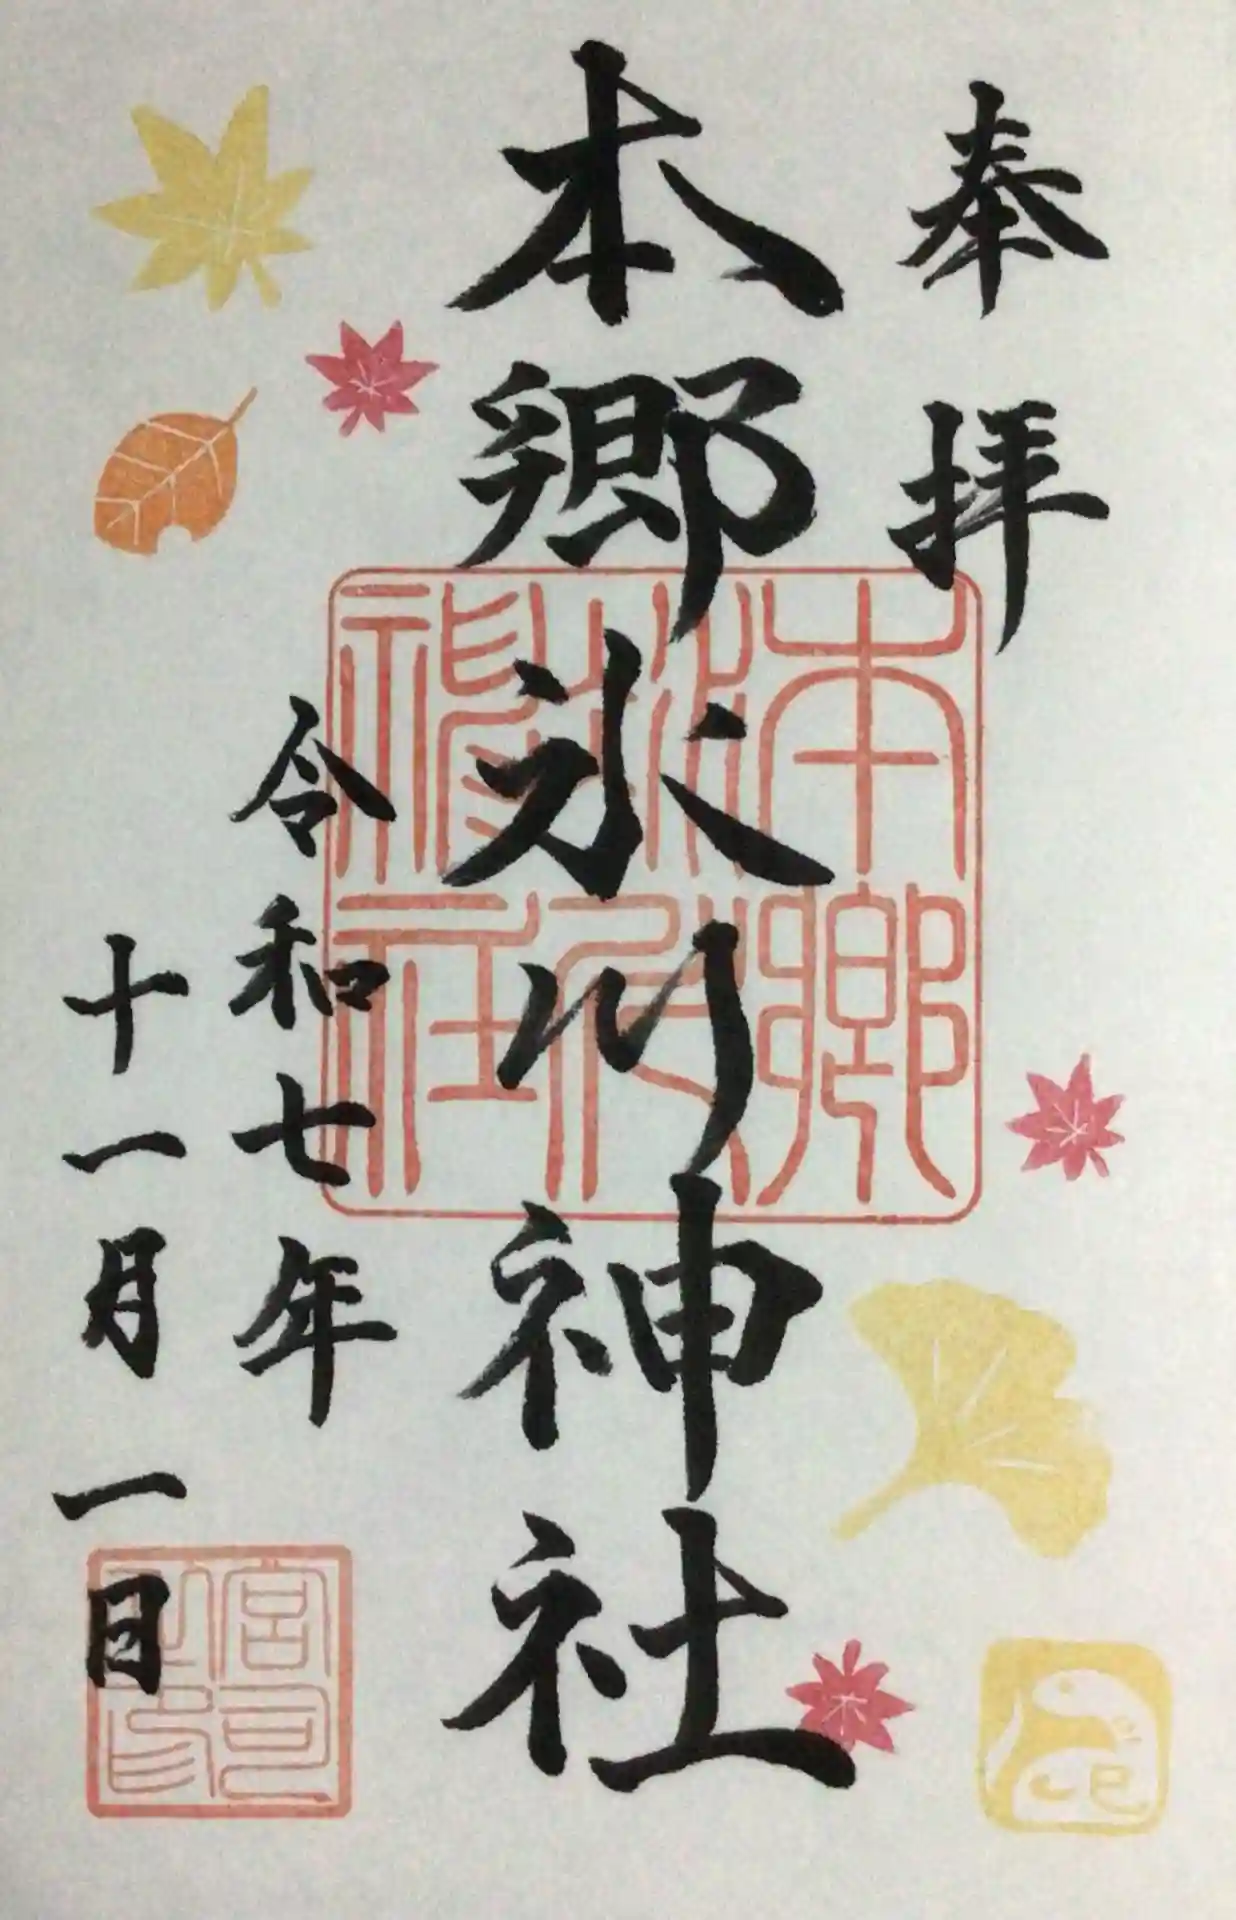 奉拝
本郷氷川神社
令和七年
十一月一日
本郷
氷川
神社
宮司
之印
巳